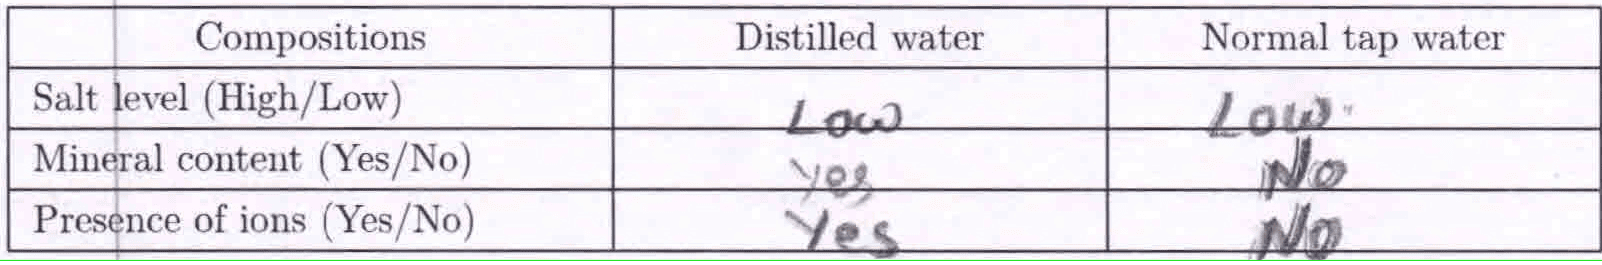 Compositions Distilled water Normal tap water
Salt level (High/Low) Low Low
Mineral content (Yes/No) Yes No
Presence of ions (Yes/No) Yes No